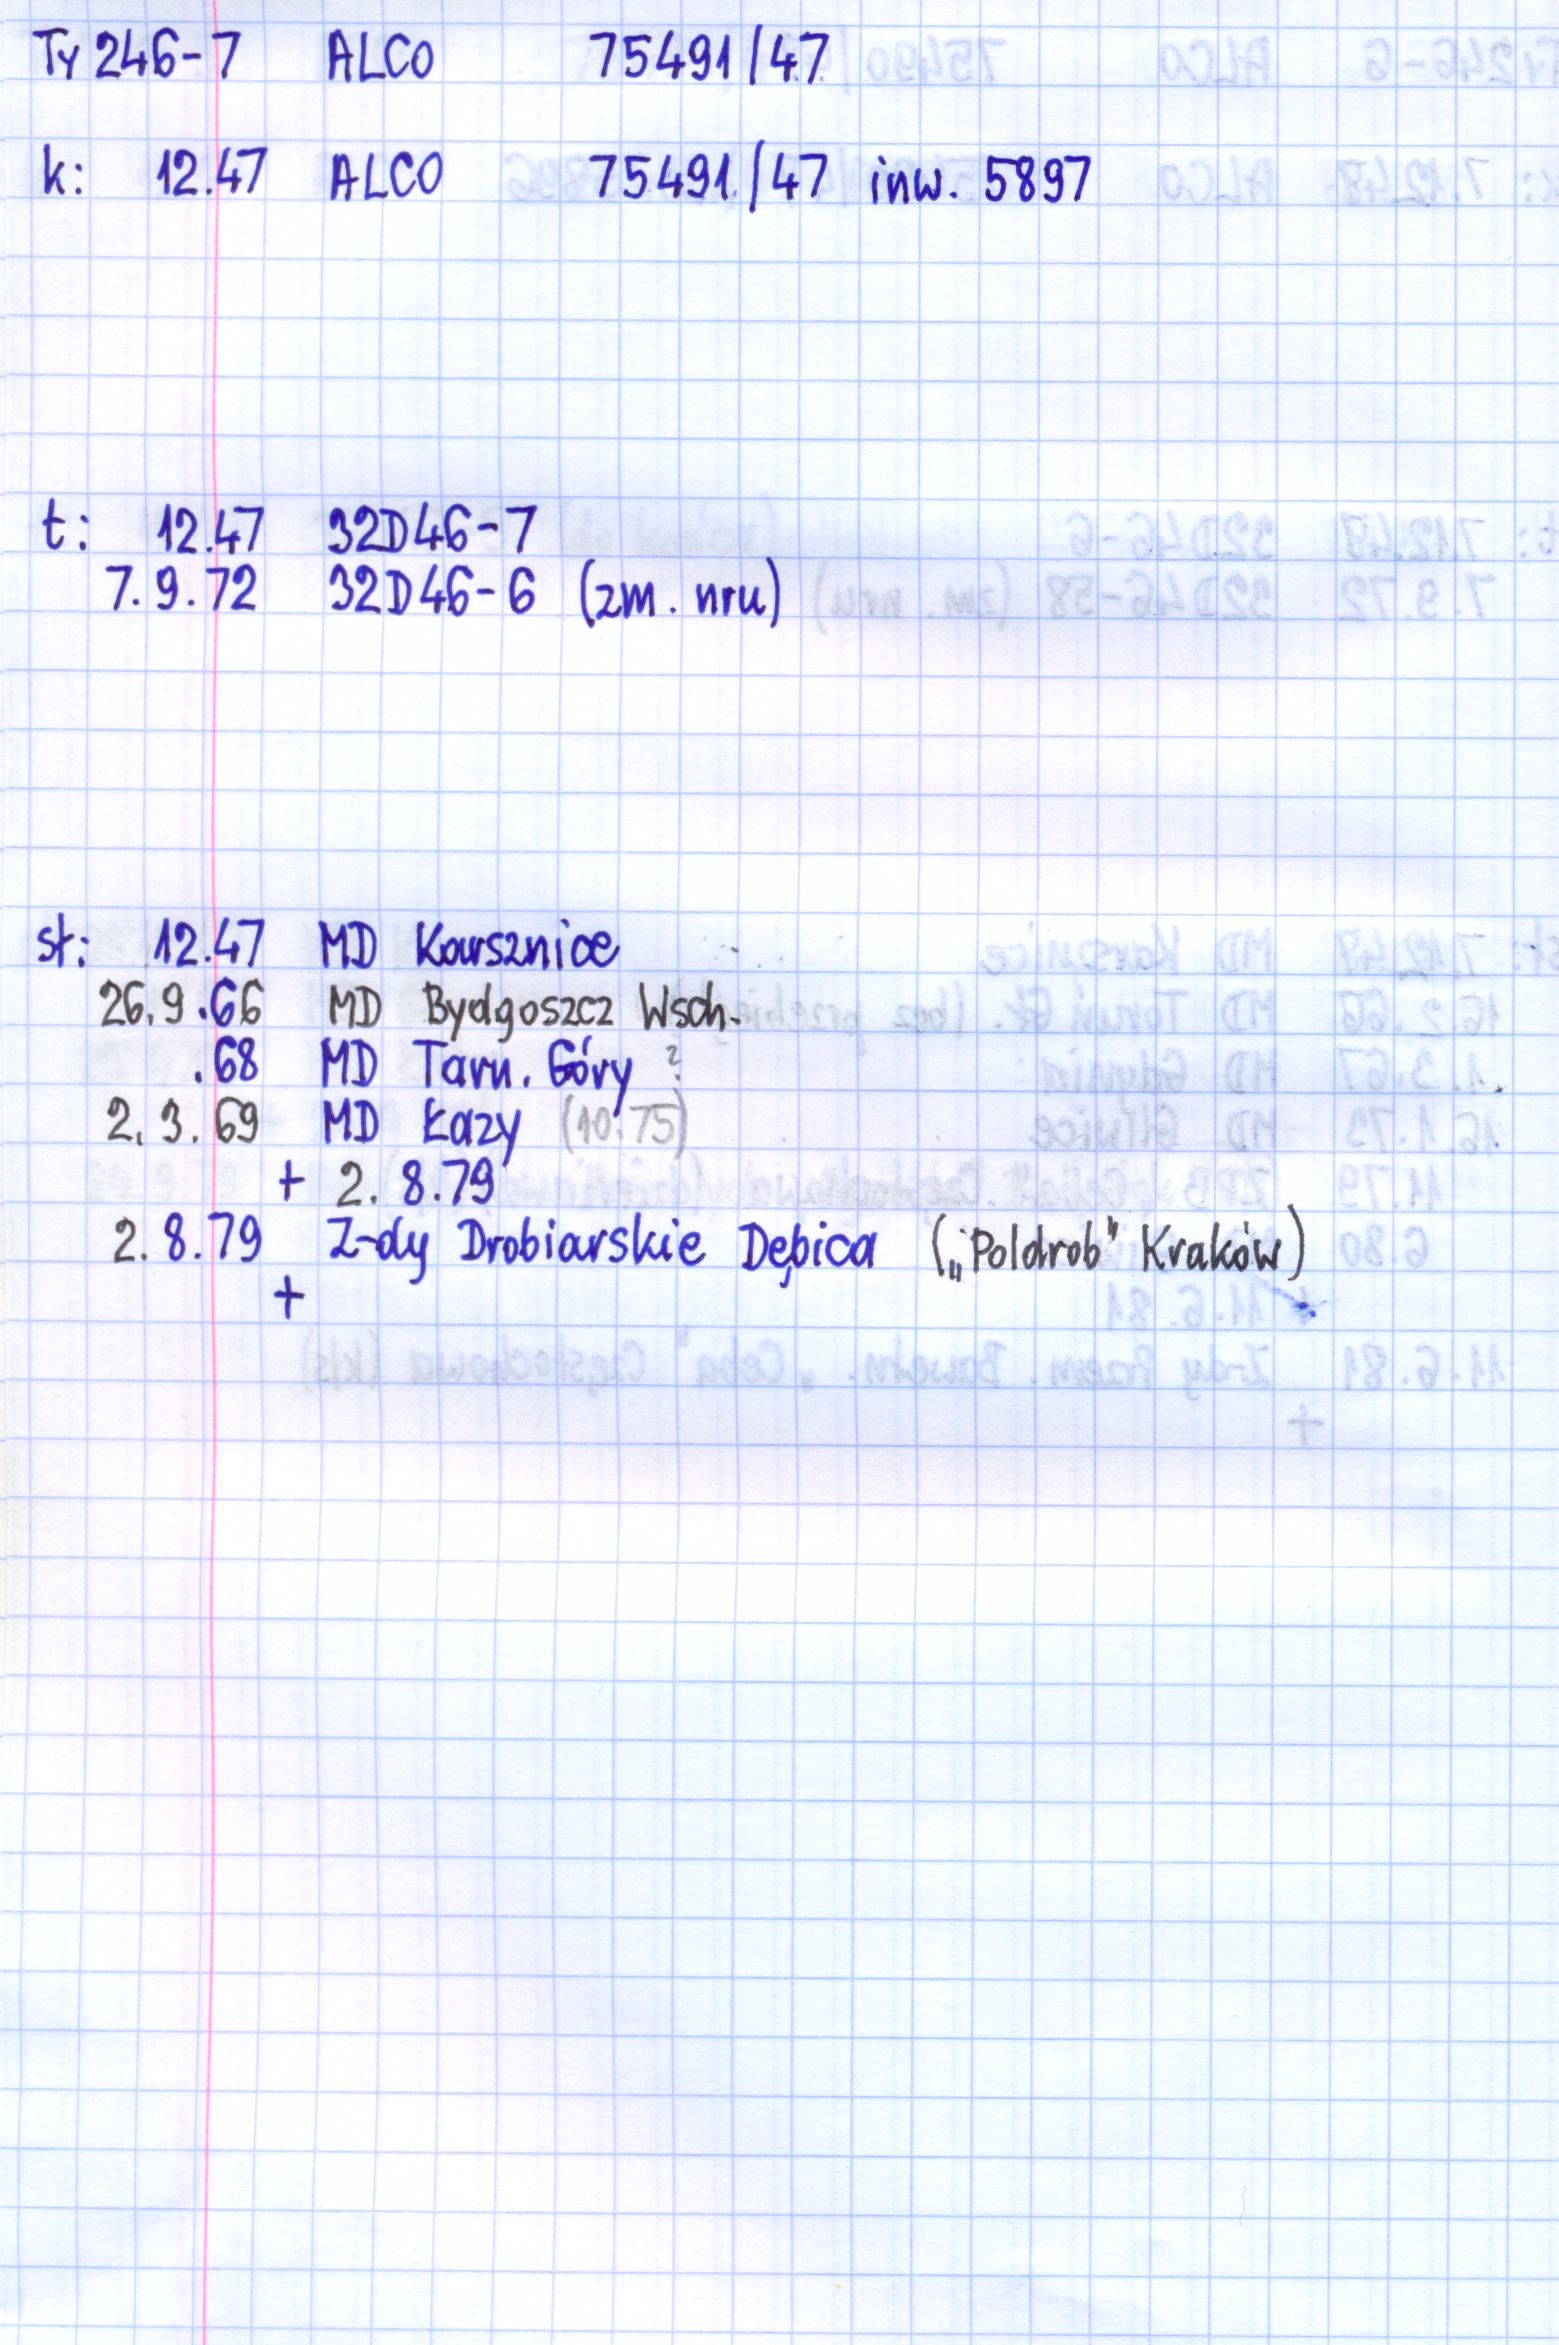 Ty 246-7 ALCO 75491/47
k: 12.47 ALCO 75491/47 inw. 5897
t: 12.47 32D46-7
7.9.72 32D46-6 (zm. nru)
st: 12.47 MD Karsznice
26.9.66 MD Bydgoszcz Wsch.
.68 MD Tarn. Góry ?
2.3.69 MD Łazy (10.75)
+ 2.8.79
2.8.79 Z-dy Drobiarskie Dębica („Poldrob" Kraków)
+